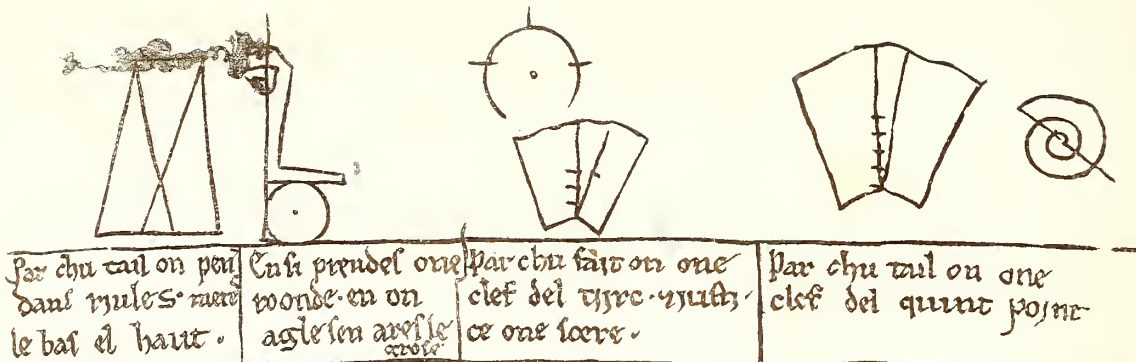 Par chu tail on pen
dans riules· metes
le bas el haut ·
Ensi prendes one
roonde · en on
agle sen ares le
grose
Par chu fait on one
clef del tiirc · 
ce one scere ·
Par chu tail on one
clef del quint point